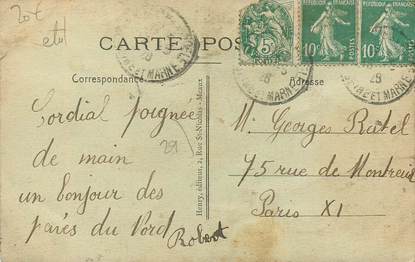 20€
CARTE POS
REPUBLIQUE FRANÇAISE
REPUBLIQUE FRANÇAISE
5
10
POSTES
10
28
28
28
SEINE ET MARNE
Correspondance
Adresse
Cordial poignée
de main
un bonjour des
parés du Nord
Robert
29
Henry, éditeur, 2, Rue St-Nicolas - Meaux
M. Georges Ratel
75 rue de Montreuil
Paris XI